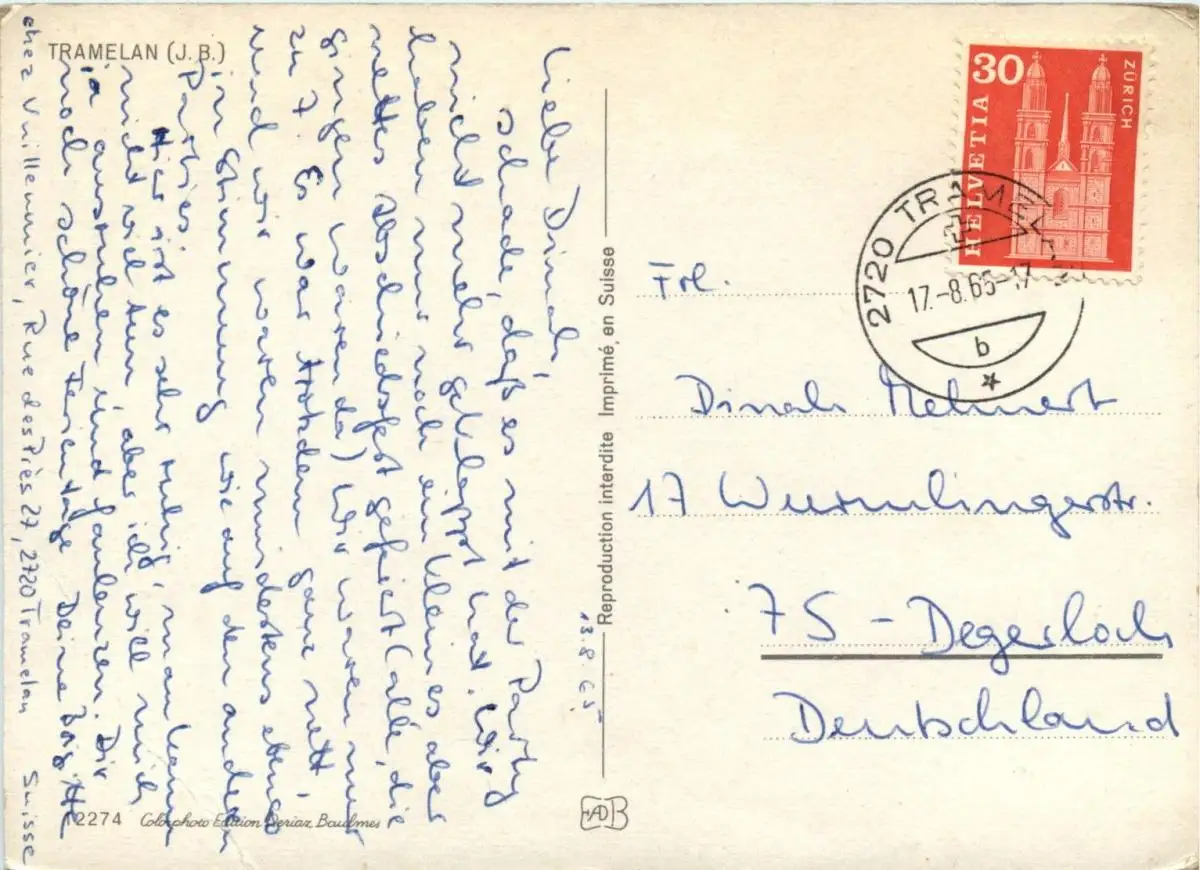 TRAMELAN (J. B.)
Liebe Dinah,
schade, daß es mit der Party
nicht mehr geklappt hat. Wir
haben nur noch ein kleines aber
nettes Abschiedsfest gefeiert (alle, die
gingen waren da) Wir waren nur
zu 7. Es war trotzdem ganz nett,
und wir waren mindestens ebenso
in Stimmung wie auf den anderen
Parties.
Hier ist es sehr ruhig, man kann
nicht viel tun aber ich will mich
ja ausruhen und faulenzen. Dir
noch schöne Ferientage Deine
chez Vuilleumier, Rue des Près 27, 2720 Tramelan Suisse
13.8.65
12274 Colorphoto Edition Deriaz Baulmes
Reproduction interdite Imprimé, en Suisse
EAD B
30
HELVETIA
ZÜRICH
2720 TRAMEL
17.-8.65-17
b
Frl.
Dinah Mehnert
17 Wurmlingerstr.
75 - Degerloch
Deutschland